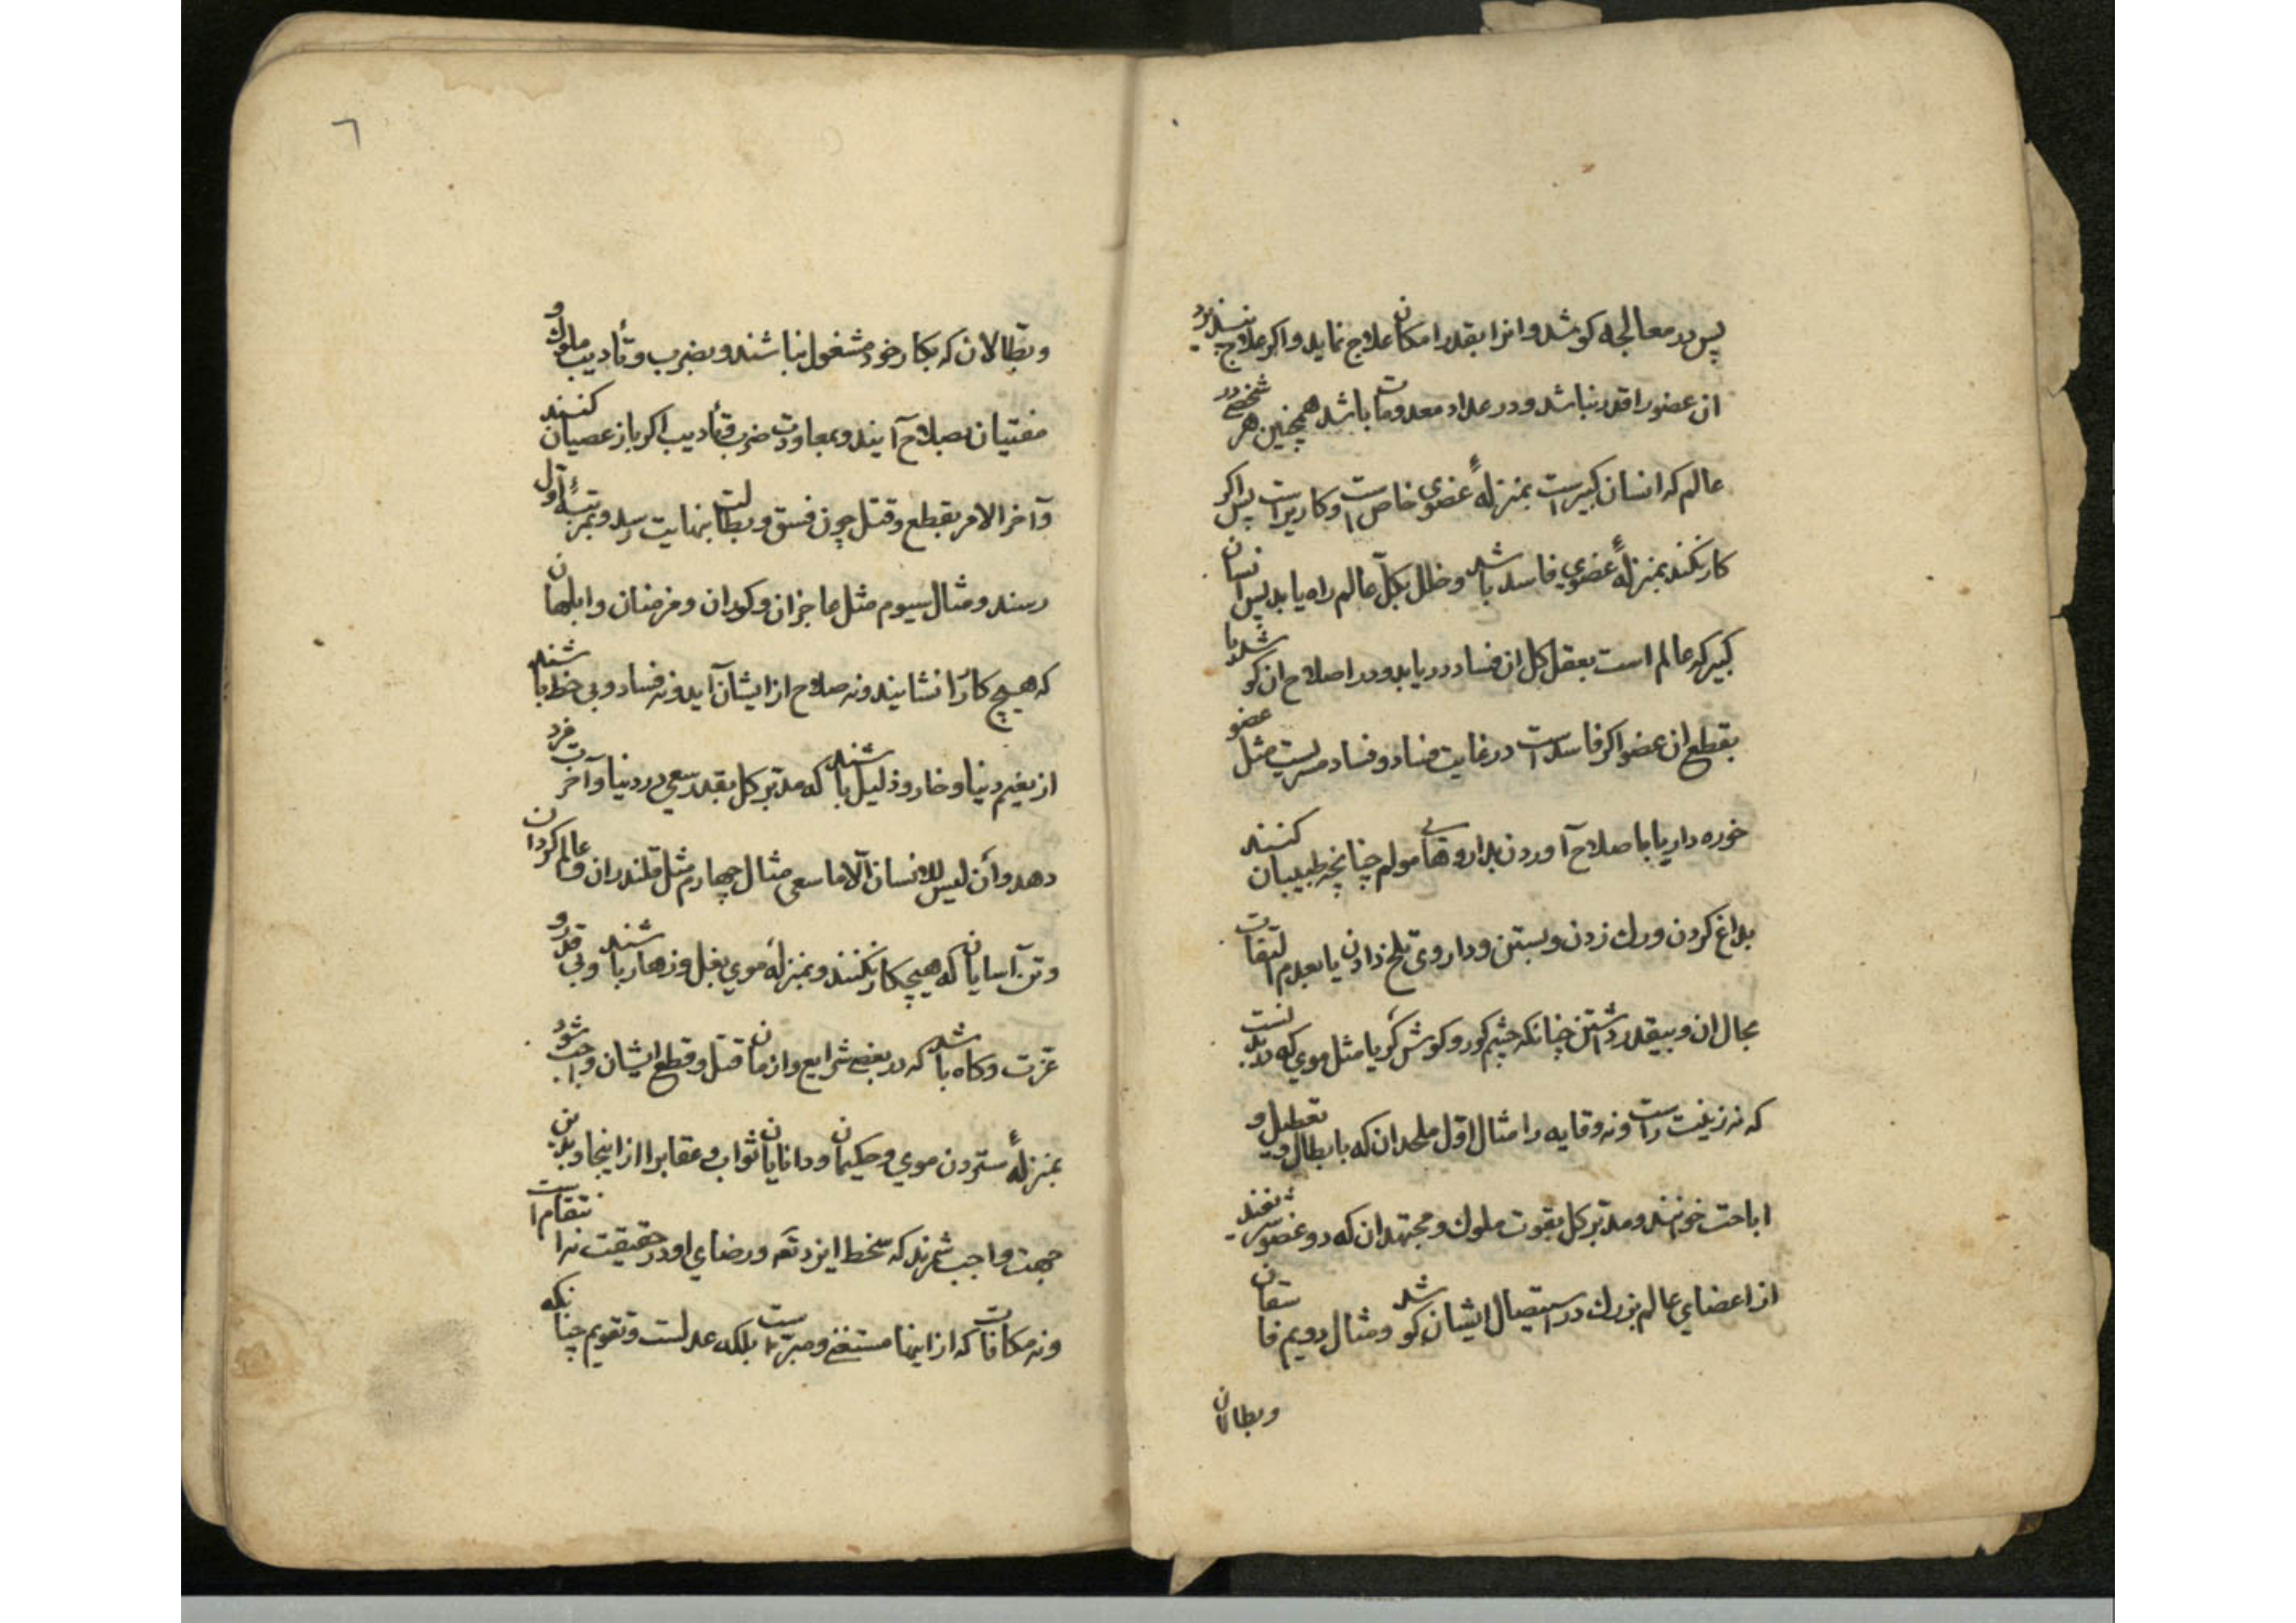 پس در معالجه کوشد و انرا بقدر امکان علاج نماید و اکر علاج نپذیرد
ان عضو را قدر نباشد و در عداد معدومات باشد همچنین هر شخصی در
عالم که انسان کبیر است بمنزلهٔ عضوی خاص است و کاریراست پس اکر
کار نکند بمنزلهٔ عضوی فاسد باشد و خلل بکلّ عالم راه یابد پس انسان
کبیر که عالم است بعقل کل ان فساد دریابد و در اصلاح ان کوشد یا
بقطع ان عضو اکر فاسد است در غایت فساد و فساد مسریست مثل
خوره دار یا باصلاح آوردن بداروهای مولم چنانچه طبیبان کنند
بداغ کردن و رک زدن و بستن و داروی تلخ دادن یا بعدم التفات
بحال ان و بیقدر داشتن چنانکه چشم کور و کوش کر یا مثل موی که در بدنست
که نه زینت راست و نه وقایه را مثال اوّل ملحدان که با بطال و تعطیل و
اباحت خوانند و مدبّر کل بقوت ملوک و مجتهدان که دو عضو شریفند
از اعضای عالم بزرک در استیصال ایشان کوشد و مثال دویم فاسقان
و بطالان
٦
و بطّالان که بکار خود مشغول نباشند و بضرب و تأدیب ملوک و
مفتیان بصلاح آیند و بمعاودت ضرب و تأدیب اکر باز عصیان کنند
و آخر الامر بقطع و قتل چون فسق و بطالت بنهایت رسد و بمرتبهٔ اول
رسند و مثال سیوم مثل عاجزان و کوران و مزمنان و ابلهان
که هیچ کار را نشایند و نه صلاح از ایشان آید و نه فساد و بی حظ باشند
از نعیم دنیا و خار و ذلیل باشند که مدبّر کل بقدر سعی در دنیا و آخرت مزد
دهد و أن لیس للانسان الّا ما سعی مثال چهارم مثل قلندران و عالم کردان
و تن آسایان که هیچ کار نکنند و بمنزلهٔ موی بغل و زهار باشند و بی قدر و
عزت و کاه باشد که در بعضی شرایع و ازمان قتل و قطع ایشان واجب شود
بمنزلهٔ ستردن موی و حکیمان و دانایان ثواب و عقاب را از اینجا و بدین
جهت واجب شمرند که سخط ایزد تعه و رضای او در حقیقت نه انتقام است
و نه مکافات که از اینها مستغنی و مبرّاست بلکه عدلست و تقویم چنانکه